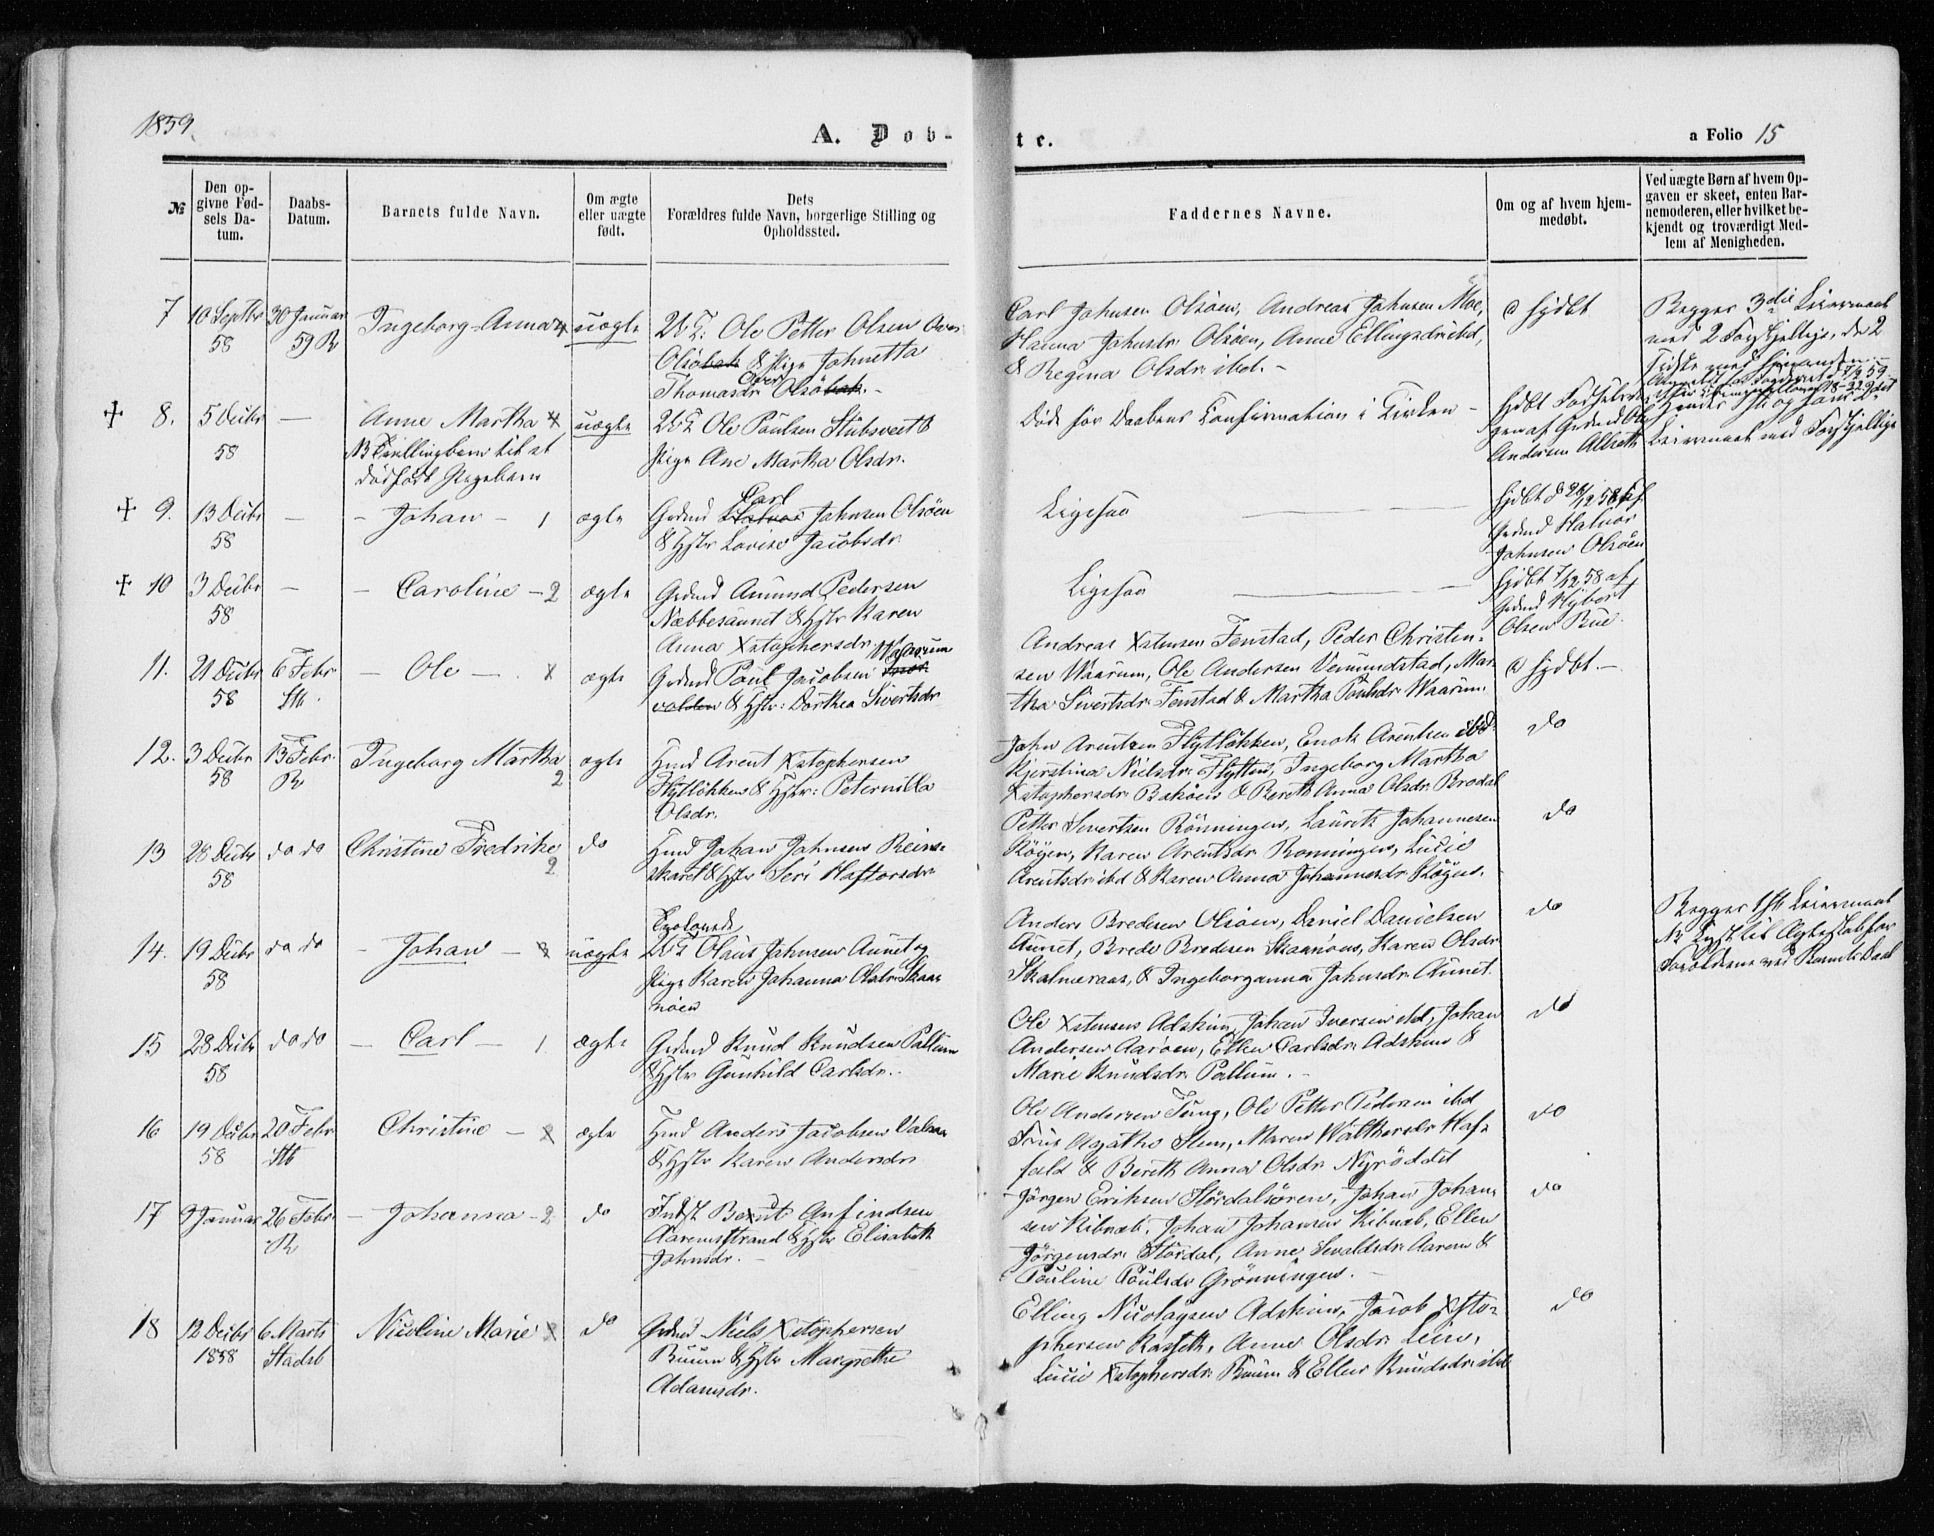 1859.
A. Dob-
te.
a Folio 15
№
Den op-
givne Fød-
sels Da-
tum.
Daabs-
Datum.
Barnets fulde Navn.
Om ægte
eller uægte
født.
Dets
Forældres fulde Navn, borgerlige Stilling og
Opholdssted.
Faddernes Navne.
Om og af hvem hjem-
medøbt.
Ved uægte Børn af hvem Op-
gaven er skeet, enten Bar-
nemoderen, eller hvilket be-
kjendt og troværdigt Med-
lem af Menigheden.
7
10 Septbr
58
30 Januar
59 R
Ingeborg-Anna
uægte
Ole Petter Olsen
& Pige Johnetta
Thomasdr Over Olsö
Carl Johnsen Olsöen, Andreas Johnsen Moe,
Hanna Johnsdr Olsöen, Anne Ellingsdr ibd,
& Regina Olsdr ibd. -
hjdbt
Begges 3die Leiermaal
med 2 Forskjellige, de 2
8.
5 Decbr
58
—
Anne Martha
NB Tvillingbarn til et
dödfödt Pigebarn
uægte
Ole Paulsen Stubsveet &
Pige Ane Martha Olsdr.
Döde för Daabens Confirmation i Kirken -
hjdbt
gen af Grdmd Ole
Andersen
Leiermaal med Forskjellige
9.
13 Decbr
58
—
- Johan - 1
ægte
Grdmd Carl Johnsen Olsöen
& Hstr Lovise Jacobsdr
Ligesaa
hjdbt
Grdmd Halvor
Johnsen Olsöen
10
3 Decbr
58
—
- Caroline - 2
ægte
Grdmd Amund Pedersen
Næbbesaunet & Hstr Karen
Anna Xstophersdr
Ligesaa
hjdbt 7/12 58 af
Grdmd
Olsen Rue.
11.
21 Decbr
58
6 Febr
St.
- Ole -
ægte
Grdmd Poul Jacobsen Waarum
& Hstr: Dorthea Sivertsdr
Andreas Xstensen Fenstad, Peder Christen-
sen Waarum, Ole Andersen Vemundstad, Mar-
tha Sivertsdr Fenstad & Martha Poulsdr Waarum.
hjdbt. -
12.
3 Decbr
58
13 Febr.
R
Ingeborg Martha
2
ægte
Hmd Arent Xstophersen
Flytlökken & Hstr: Peternilla
Olsdr.
John Arentsen Flytlökken, Enok Arentsen ibd
Kjerstina Nielsdr Flytten, Ingeborg Martha
Xstophersdr Baköen & Bereth Anna Olsdr Brodal
do
13
28 Decbr
58
do do
Christine Fredrike
2
do
Hmd Johan Johnsen Reins-
skaret & Hstr Seri Haftorsdr
Petter Sivertsen Rönningen, Lauritz Johannesen
Skögen, Karen Arentsdr Ronningen, Lucie
Arentsdr ibd & Karen Anna Johannesdr Skögen.
do
14.
19 Decbr
58
do do
- Johan -
uægte
Forlovede
Olaus Johnsen Aunet og
Pige Karen Johanna Olsdr Skaa-
nöen
Anders Bredesen Olsöen, Daniel Danielsen
Aunet, Brede Bredesen Skaanöen, Karen Olsdr
Skalmeraas, & Ingeborganna Johnsdr Aunet.
do
Begges 1ste Leiermaal
NB Lyst til Ægteskab for
Forældrene ved Barnets Daab
15
28 Decbr
58
do do
- Carl - 1.
ægte
Grdmd Knud Knudsen Pallum
& Hstr Gunhild Carlsdr. -
Ole Xstensen Adskim, Johan Iversen ibd, Johan
Andersen Aaröen, Ellen Carlsdr Adskim &
Marie Knudsdr Pallum. -
do
16
19 Decbr
58
20 Febr
St
Christine -
ægte
Hmd Anders Jacobsen
& Hstr Karen Andersdr
Ole Andersen Tung, Ole Petter Pedersen ibd
Frue Agathe Stene, Maren Walthersdr Haf-
fald & Bereth Anna Olsdr Nyröddet
do
17
9 Januar
26 Febr.
R
- Johanna - 2
do
Indst Anfindsen
Aaremstrand & Hstr Elisabeth
Johnsdr. -
Jörgen Eriksen Stördalsören, Johan Johan-
sen Ribnæb, Johan Johansen Ribnæb, Ellen
Jörgensdr Stördal, Anne Sevaldsdr Aarem &
Pauline Poulsdr Grönningen. -
do
18
12 Decbr
1858
6 Marts
Stadsb
Nicoline Marie
do
Grdmd Niels Xstophersen
Buum & Hstr Margrethe
Adamsdr.
Elling Nicolaysen Adskim, Jacob Xsto-
phersen Rasseth, Anne Olsdr Leen,
Lucie Xstophersdr Buum & Ellen Knudsdr ibd
do